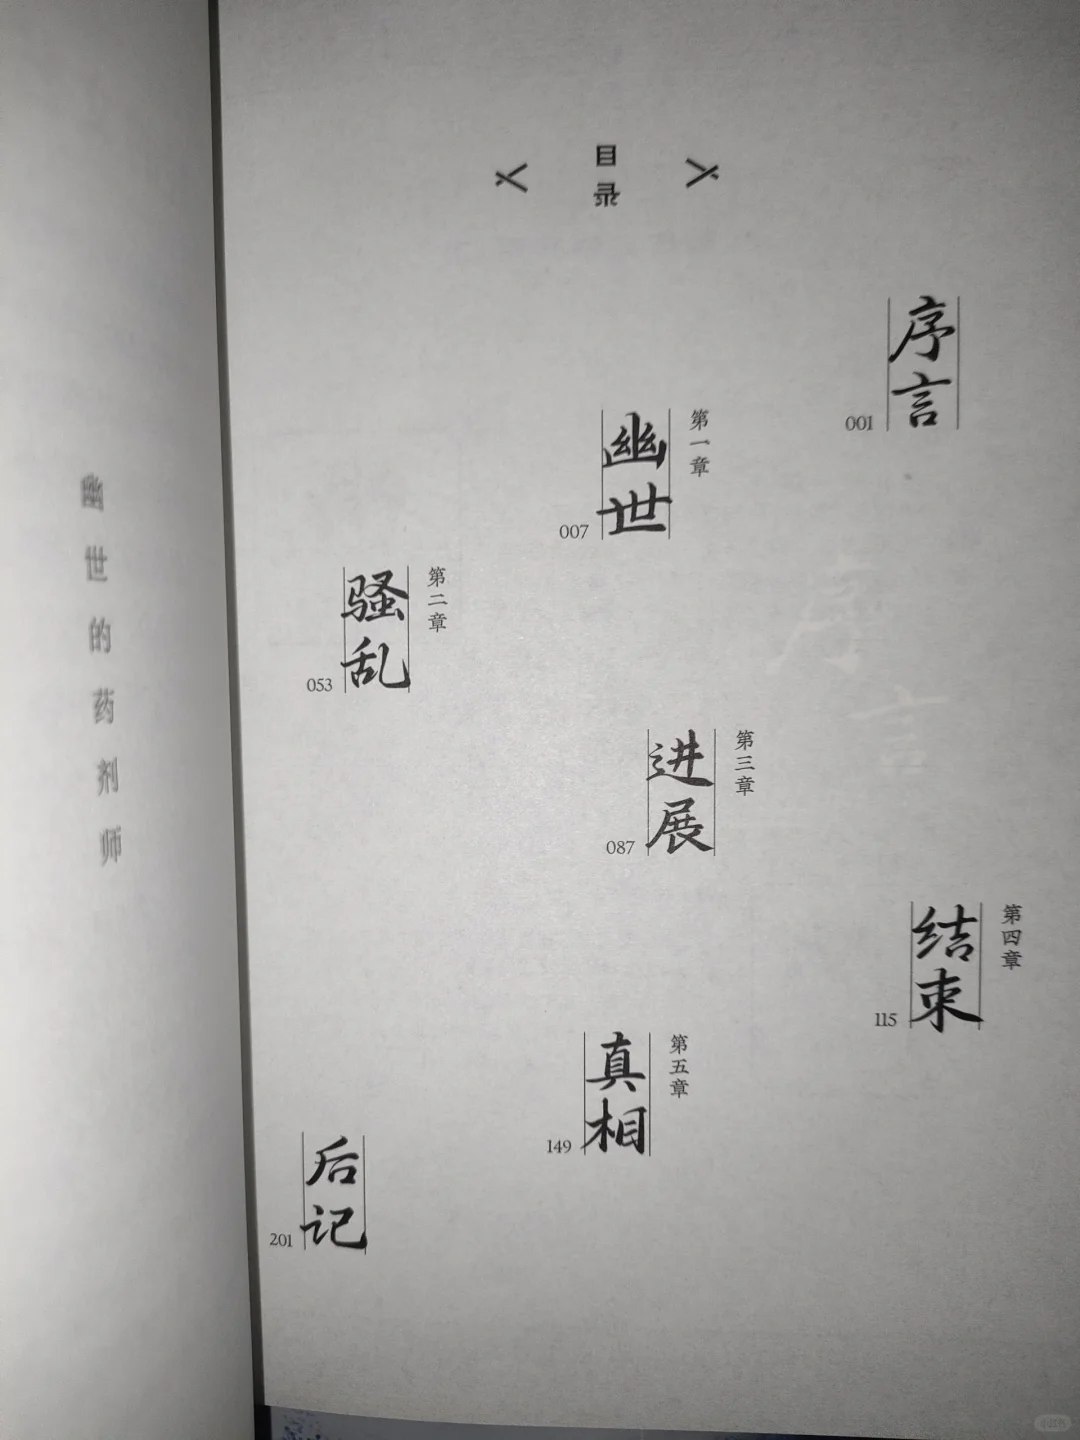 幽世的药剂师
目录
序言
001
第一章
幽世
007
第二章
骚乱
053
第三章
进展
087
第四章
结束
115
第五章
真相
149
后记
201
序言